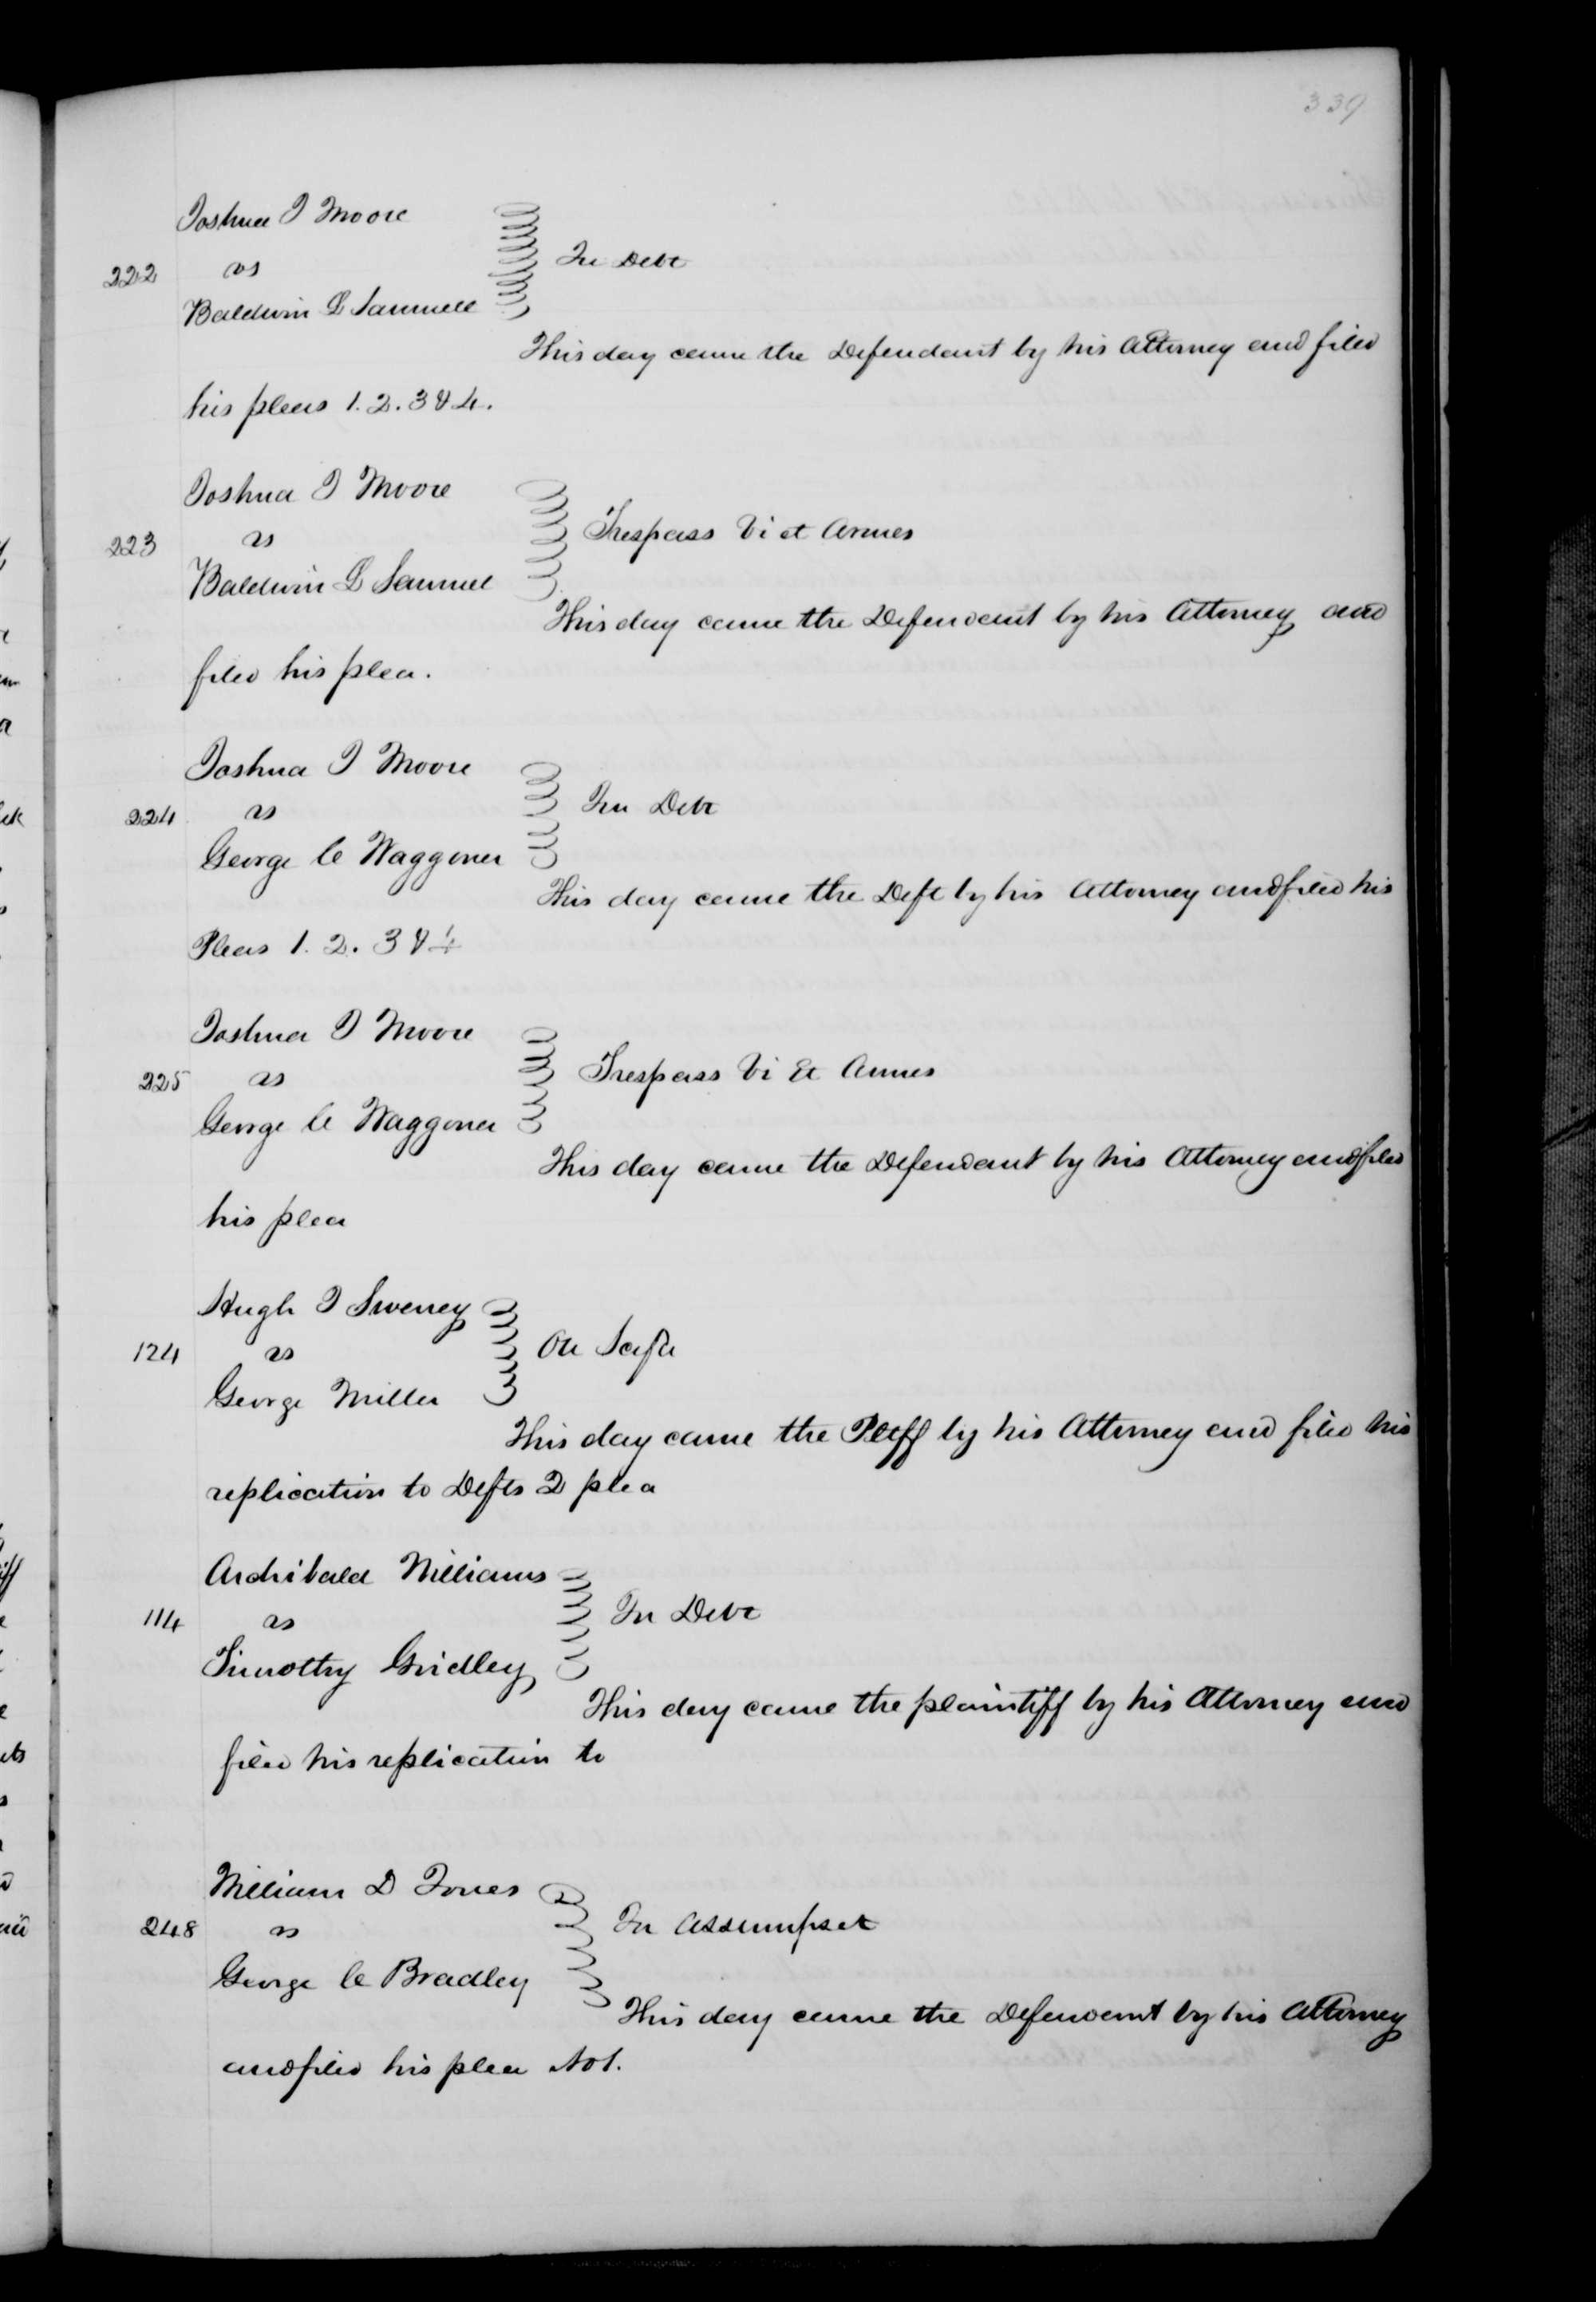 339
Joshua J Moore
222 vs In Debt
Baldwin L Samuell
This day came the Defendant by his Attorney and filed
his pleas 1. 2. 3 & 4.
Joshua J Moore
223 vs Trespass Vi et Armes
Baldwin L Samuel
This day came the Defendant by his Attorney and
filed his plea.
Joshua J Moore
224 vs In Debt
George C Waggoner
This day came the Deft by his Attorney and filed his
Pleas 1. 2. 3 & 4
Joshua J Moore
225 vs Trespass Vi Et Armes
George C Waggoner
This day came the Defendant by his Attorney and filed
his plea
Hugh J Sweney
124 vs On Scifa
George Miller
This day came the Plff by his Attorney and filed his
replication to Defts 2 plea
Archibald Williams
114 vs In Debt
Timothy Gridley
This day came the plaintiff by his Attorney and
filed his replication to
William D Jones
248 vs In Assumpset
George C Bradley
This day came the Defendant by his Attorney
and filed his plea No 1.